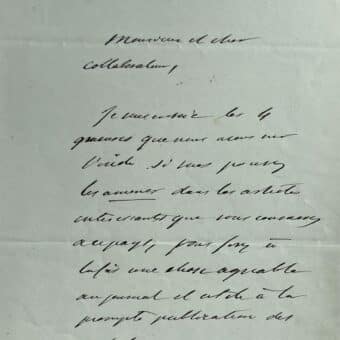 Monsieur et cher
collaborateur,
Je vous envoie les 4
que nous avons sur
si vous pouvez
les amener dans les articles
intéressants que vous consacrez
au pays, vous ferez à
la fois une chose agréable
au journal et utile à la
prompte publication des